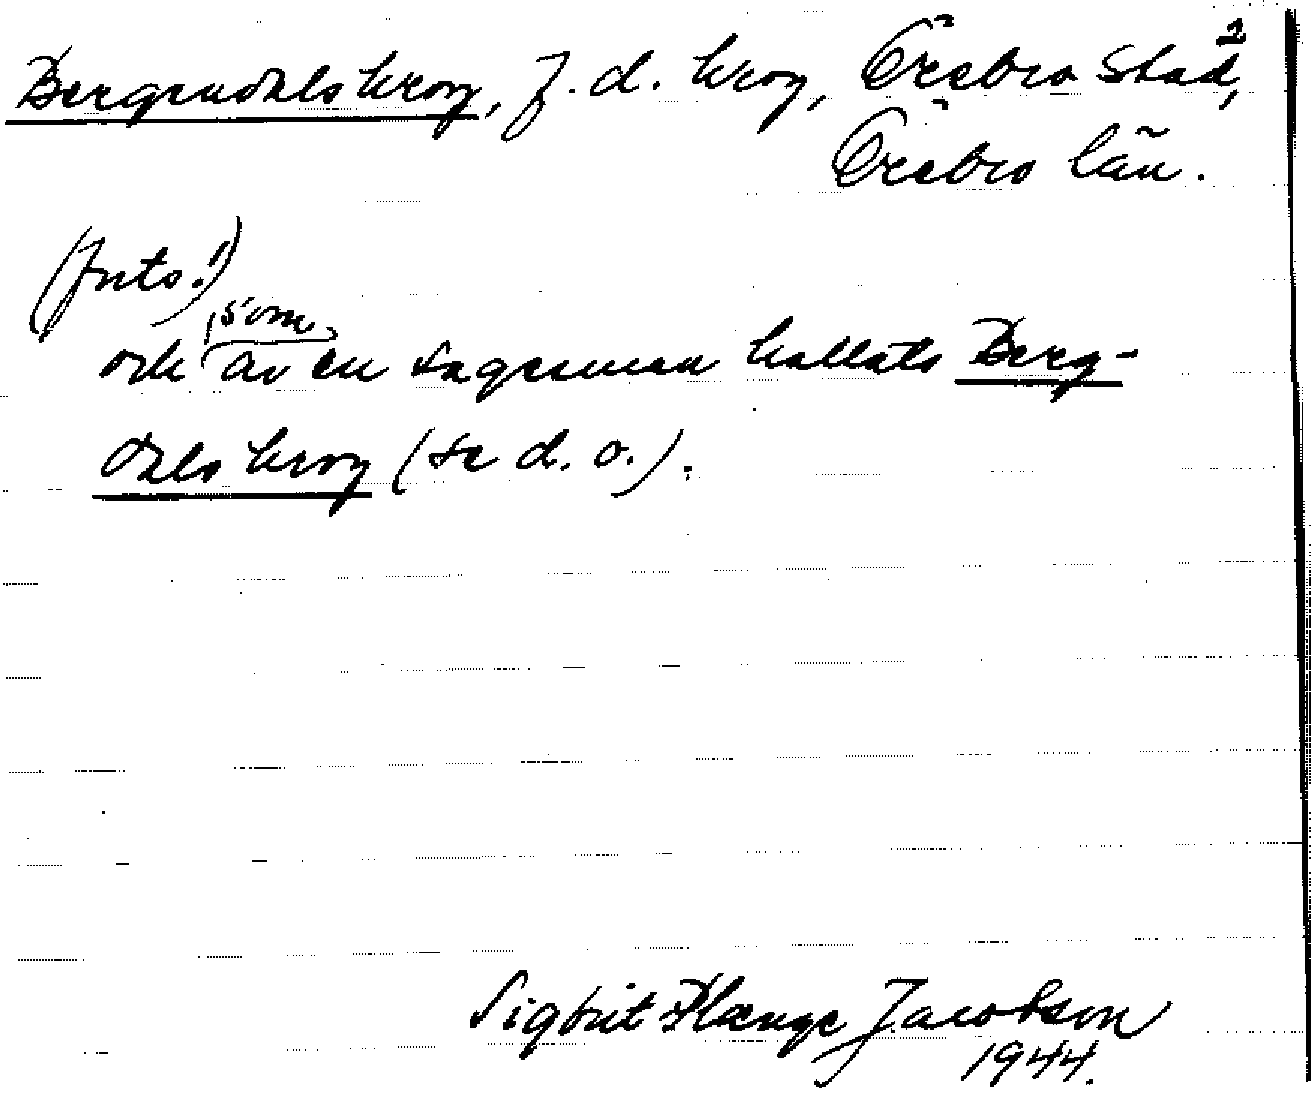 Bergendahls krog, f. d. krog, Örebro stad, 2
Örebro län.
(Forts.!)
som
och av en sagesman kallats Berg-
dahls krog (se d. o.).
Sigbrit Plænge Jacobson
1944.